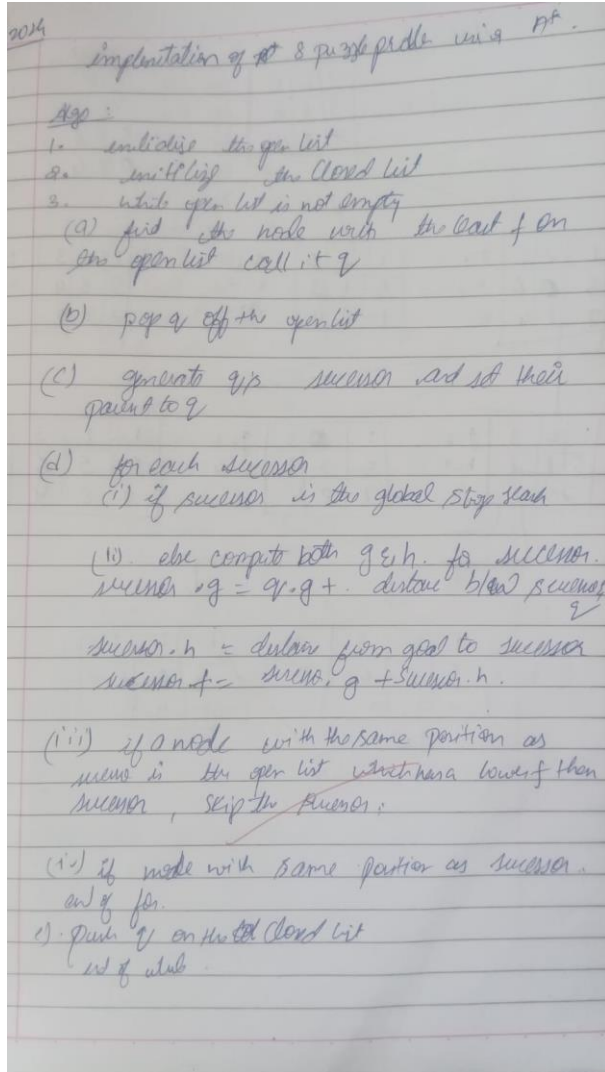 implemitation of 8 puzzle problem using A*.
Algo:
1. initialise the open list
2. initilize the Closed list
3. while open list is not empty
(a) find the node with the least f on
the open list call it q
(b) pop q off the open list
(c) generate q's sucessor and set their
parent to q
(d) for each sucessor
(i) if sucessor is the global stop seach
(ii) else compute both g & h. for successor.
sucessor.g = q.g + distace b/w sucessor
q
sucessor.h = distace from goal to sucessor
sucessor f = sucesso. g + sucessor.h.
(iii) if a node with the same position as
is the open list which has a lower f than
sucessor, skip the sucessor.
(iv) if node with same position as sucessor.
end of for.
e). push q on the Closed list
end of while